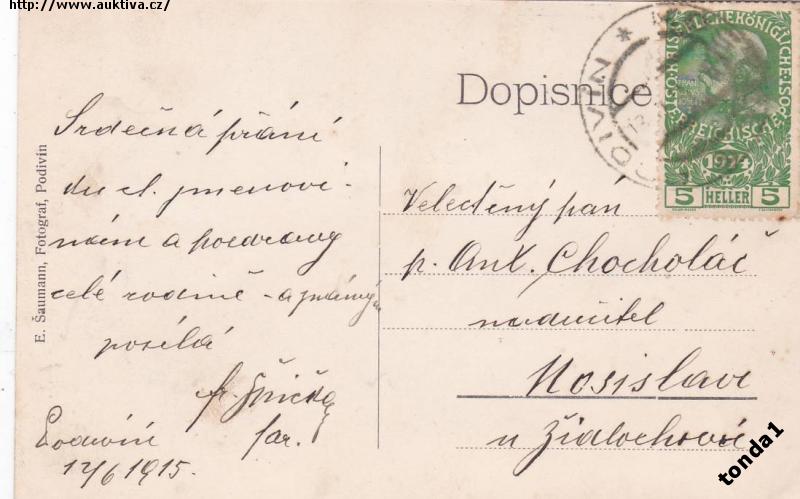 http://www.auktiva.cz/
Dopisnice
KAIS. KÖNIGLICHE ÖSTERREICHISCHE
1914
5 HELLER 5
PODIVIN
E. Šaumann, Fotograf, Podivín
Srdečná přání
du ct. jmenovi-
nám a pozdravy
celé rodině - a známým
posílá
fr. Špička
far.
Podivín
17/6 1915.
Velectěný pán
p. Ant. Chocholáč
nadučitel
Nosislavi
u Židlochovic
tonda1